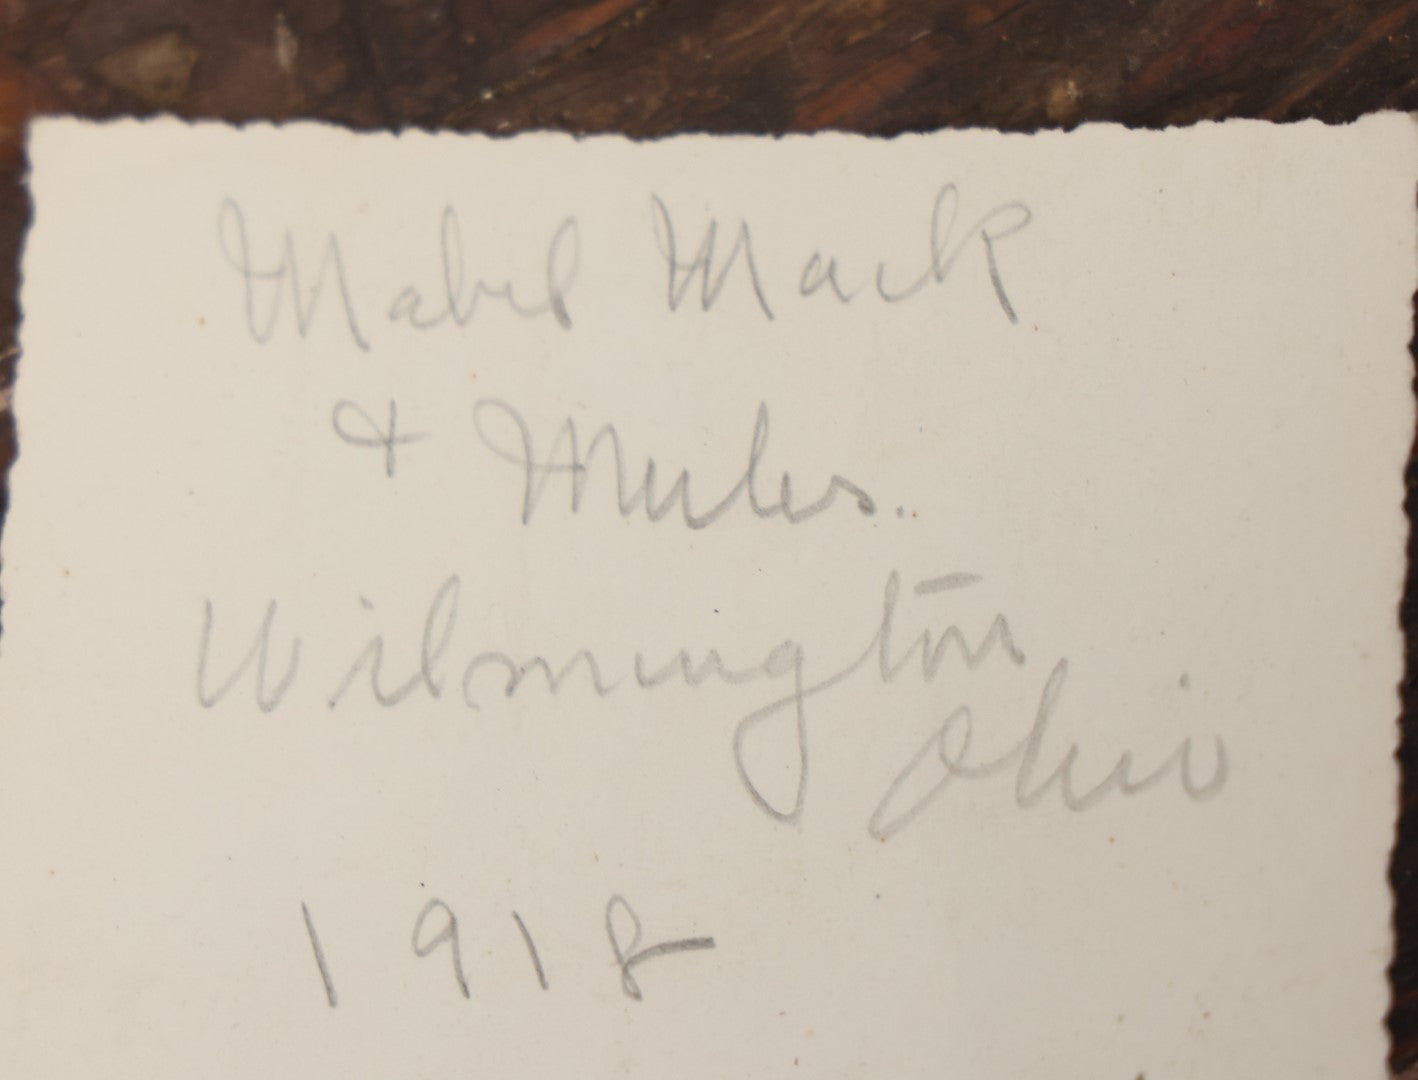 Mabel Mack
& Mules.
Wilmington
Ohio
1918